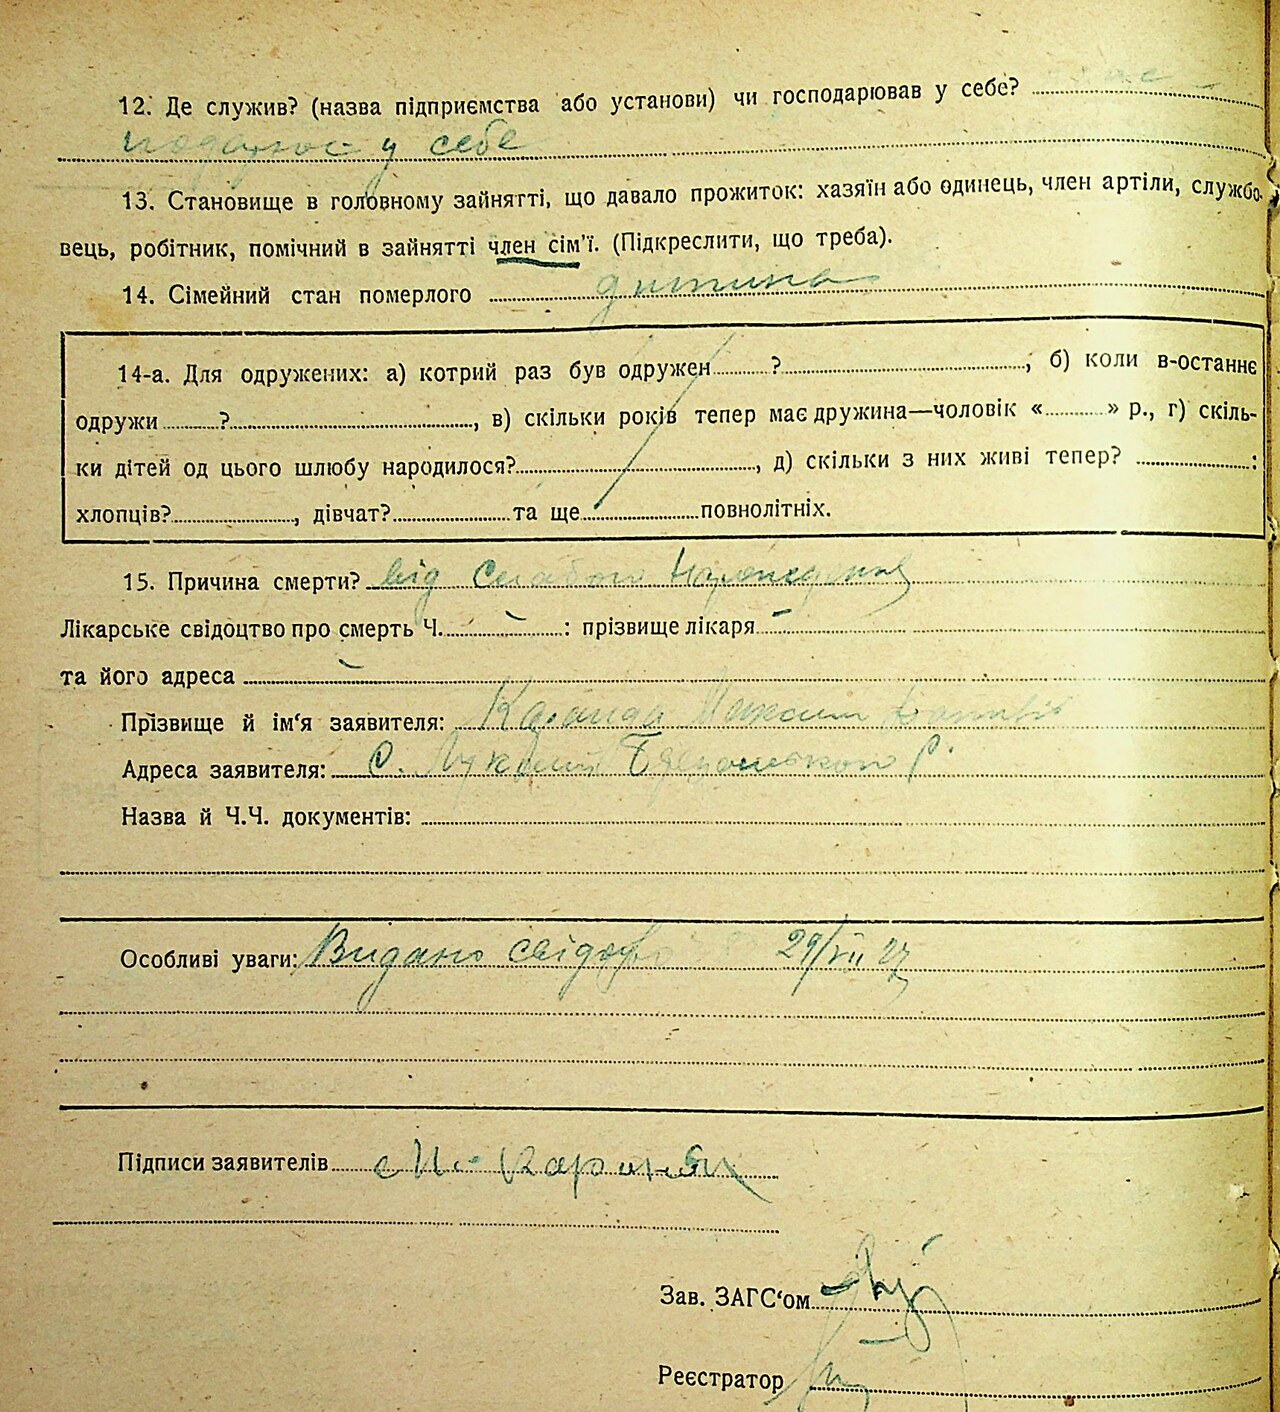 12. Де служив? (назва підприємства або установи) чи господарював у себе?
у себе
13. Становище в головному зайнятті, що давало прожиток: хазяїн або одинець, член артіли, службо-
вець, робітник, помічний в зайнятті член сім'ї. (Підкреслити, що треба).
14. Сімейний стан померлого дитина
14-а. Для одружених: а) котрий раз був одружен ?, б) коли в-останнє
одружи ?, в) скільки років тепер має дружина—чоловік « » р., г) скіль-
ки дітей од цього шлюбу народилося?, д) скільки з них живі тепер? :
хлопців?, дівчат? та ще повнолітніх.
15. Причина смерти? від
Лікарське свідоцтво про смерть Ч. : прізвище лікаря
та його адреса
Прізвище й ім'я заявителя: Максим
Адреса заявителя: с.
Назва й Ч.Ч. документів:
Особливі уваги: Видано 29/VII 27
Підписи заявителів
Зав. ЗАГС'ом
Реєстратор